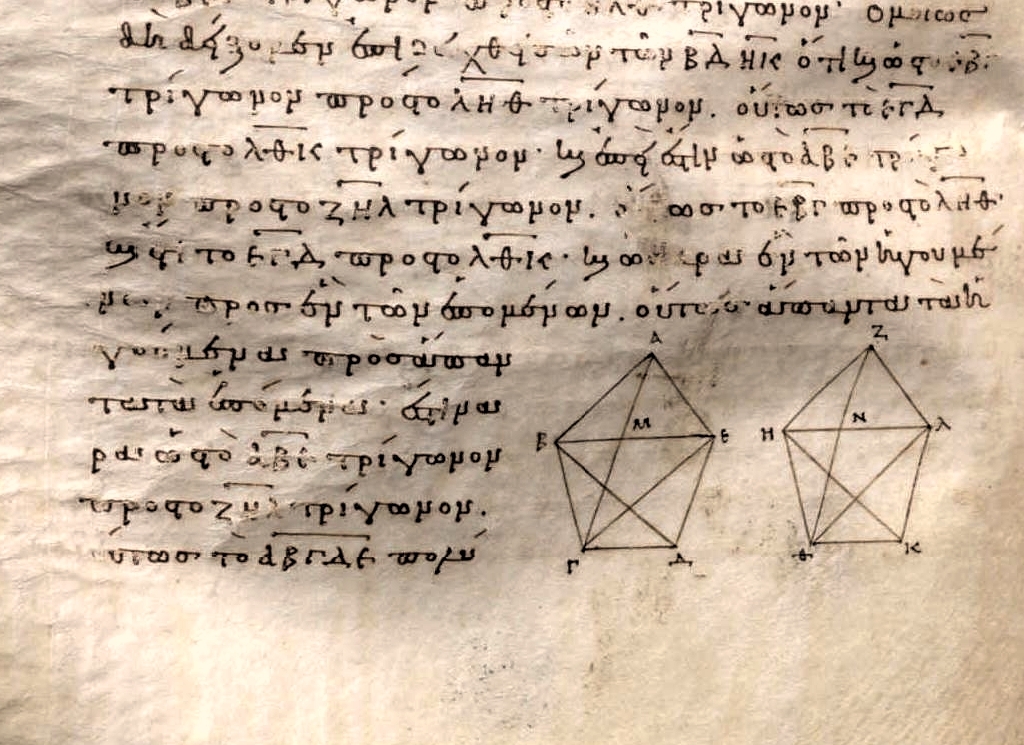 τρίγωνον· Ὁμοίως
δὴ δείξομεν ἐπιζευχθεισῶν τῶν ΒΔ ΗΚ ὅτι καὶ ὡς τὸ ΕΒΓ
τρίγωνον πρὸς τὸ ΛΗΘ τρίγωνον. οὕτως τὸ ΕΓΔ
πρὸς τὸ ΛΘΚ τρίγωνον· καὶ ἐπεί ἐστιν ὡς τὸ ΑΒΕ τρίγω
νον πρὸς τὸ ΖΗΛ τρίγωνον. οὕτως τὸ ΕΒΓ πρὸς τὸ ΛΗΘ·
καὶ ἔτι τὸ ΕΓΔ πρὸς τὸ ΛΘΚ· καὶ ὡς ἄρα ἓν τῶν ἡγουμέ
νων πρὸς ἓν τῶν ἑπομένων. οὕτως ἅπαντα τὰ ἡ
γούμενα πρὸς ἅπαν
τα τὰ ἑπόμενα· ἔστιν ἄ
ρα ὡς τὸ ΑΒΕ τρίγωνον
πρὸς τὸ ΖΗΛ τρίγωνον.
οὕτως τὸ ΑΒΓΔΕ πολύ
Α
Β
Μ
Ε
Γ
Δ
Ζ
Η
Ν
Λ
Θ
Κ